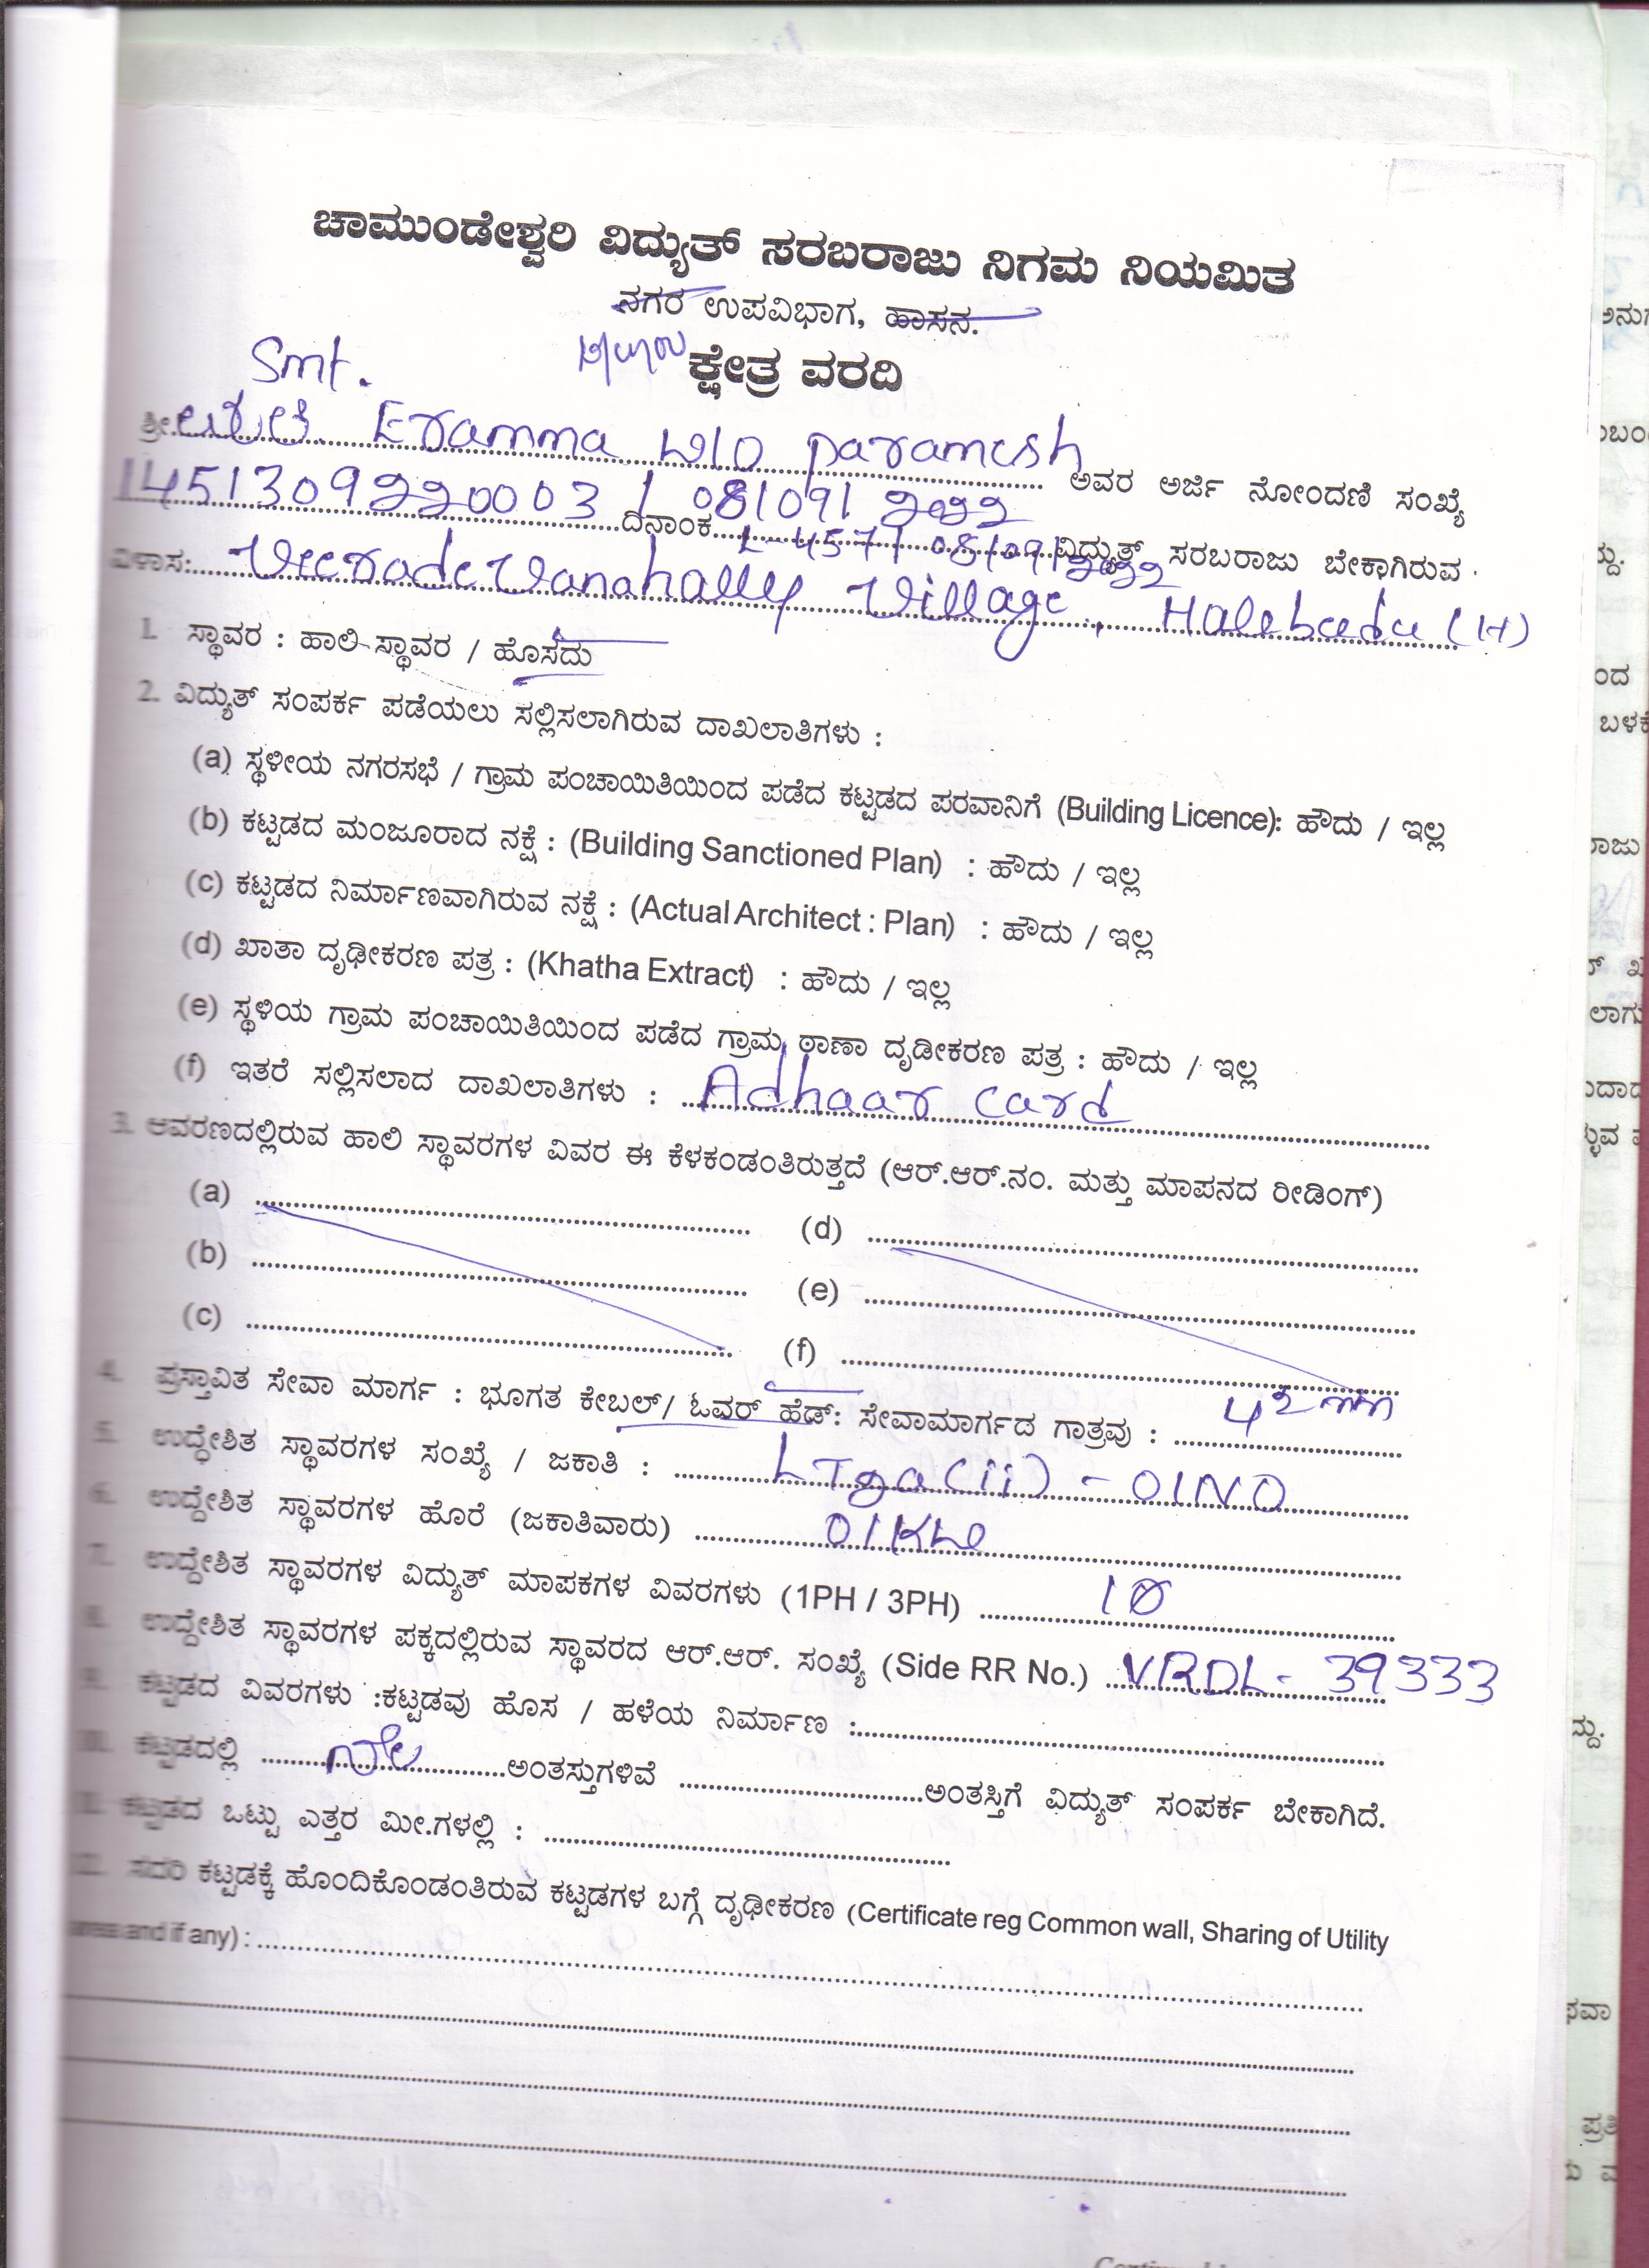 ಚಾಮುಂಡೇಶ್ವರಿ ವಿದ್ಯುತ್ ಸರಬರಾಜು ನಿಗಮ ನಿಯಮಿತ
ನಗರ ಉಪವಿಭಾಗ, ಹಾಸನ.
ಕ್ಷೇತ್ರ ವರದಿ
Smt.
ಶ್ರೀ. Eramma W/O Paramesh ಅವರ ಅರ್ಜಿ ನೋಂದಣಿ ಸಂಖ್ಯೆ
1451309220003 / 08/09/2022
ದಿನಾಂಕ L-457/08/09/2022 ವಿದ್ಯುತ್ ಸರಬರಾಜು ಬೇಕಾಗಿರುವ
ವಿಳಾಸ: Veeradevanahally Village, Halebeedu (H)
1. ಸ್ಥಾವರ : ಹಾಲಿ ಸ್ಥಾವರ / ಹೊಸದು
2. ವಿದ್ಯುತ್ ಸಂಪರ್ಕ ಪಡೆಯಲು ಸಲ್ಲಿಸಲಾಗಿರುವ ದಾಖಲಾತಿಗಳು :
(a) ಸ್ಥಳೀಯ ನಗರಸಭೆ / ಗ್ರಾಮ ಪಂಚಾಯಿತಿಯಿಂದ ಪಡೆದ ಕಟ್ಟಡದ ಪರವಾನಿಗೆ (Building Licence): ಹೌದು / ಇಲ್ಲ
(b) ಕಟ್ಟಡದ ಮಂಜೂರಾದ ನಕ್ಷೆ : (Building Sanctioned Plan) : ಹೌದು / ಇಲ್ಲ
(c) ಕಟ್ಟಡದ ನಿರ್ಮಾಣವಾಗಿರುವ ನಕ್ಷೆ : (Actual Architect : Plan) : ಹೌದು / ಇಲ್ಲ
(d) ಖಾತಾ ದೃಢೀಕರಣ ಪತ್ರ : (Khatha Extract) : ಹೌದು / ಇಲ್ಲ
(e) ಸ್ಥಳಿಯ ಗ್ರಾಮ ಪಂಚಾಯಿತಿಯಿಂದ ಪಡೆದ ಗ್ರಾಮ ಠಾಣಾ ದೃಡೀಕರಣ ಪತ್ರ : ಹೌದು / ಇಲ್ಲ
(f) ಇತರೆ ಸಲ್ಲಿಸಲಾದ ದಾಖಲಾತಿಗಳು : Adhaar card
3. ಆವರಣದಲ್ಲಿರುವ ಹಾಲಿ ಸ್ಥಾವರಗಳ ವಿವರ ಈ ಕೆಳಕಂಡಂತಿರುತ್ತದೆ (ಆರ್.ಆರ್.ನಂ. ಮತ್ತು ಮಾಪನದ ರೀಡಿಂಗ್)
(a) (d)
(b) (e)
(c) (f)
4. ಪ್ರಸ್ತಾವಿತ ಸೇವಾ ಮಾರ್ಗ : ಭೂಗತ ಕೇಬಲ್/ ಓವರ್ ಹೆಡ್: ಸೇವಾಮಾರ್ಗದ ಗಾತ್ರವು : 4² mm
5. ಉದ್ಧೇಶಿತ ಸ್ಥಾವರಗಳ ಸಂಖ್ಯೆ / ಜಕಾತಿ : LT2a(ii) - 01NO
6. ಉದ್ದೇಶಿತ ಸ್ಥಾವರಗಳ ಹೊರೆ (ಜಕಾತಿವಾರು) 01KW
7. ಉದ್ದೇಶಿತ ಸ್ಥಾವರಗಳ ವಿದ್ಯುತ್ ಮಾಪಕಗಳ ವಿವರಗಳು (1PH / 3PH) 1Ø
8. ಉದ್ದೇಶಿತ ಸ್ಥಾವರಗಳ ಪಕ್ಕದಲ್ಲಿರುವ ಸ್ಥಾವರದ ಆರ್.ಆರ್. ಸಂಖ್ಯೆ (Side RR No.) VRDL- 39333
9. ಕಟ್ಟಡದ ವಿವರಗಳು :ಕಟ್ಟಡವು ಹೊಸ / ಹಳೆಯ ನಿರ್ಮಾಣ :
10. ಕಟ್ಟಡದಲ್ಲಿ ನೆಲ ಅಂತಸ್ತುಗಳಿವೆ ಅಂತಸ್ತಿಗೆ ವಿದ್ಯುತ್ ಸಂಪರ್ಕ ಬೇಕಾಗಿದೆ.
11. ಕಟ್ಟಡದ ಒಟ್ಟು ಎತ್ತರ ಮೀ.ಗಳಲ್ಲಿ :
12. ಸದರಿ ಕಟ್ಟಡಕ್ಕೆ ಹೊಂದಿಕೊಂಡಂತಿರುವ ಕಟ್ಟಡಗಳ ಬಗ್ಗೆ ದೃಢೀಕರಣ (Certificate reg Common wall, Sharing of Utility
area and if any) :